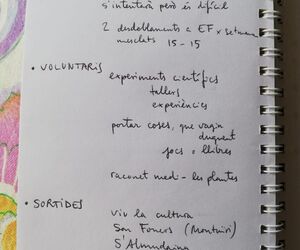 s'intentarà però és difícil
2 desdoblaments a EF x setmana
mesclats 15-15
• VOLUNTARIS
experiments científics
tallers
experiències
portar coses, que vagin
duguent
jocs = llibres
raconet medi - les plantes
• SORTIDES
viu la cultura
Son Fornés (Montuïri)
S'Almudaina